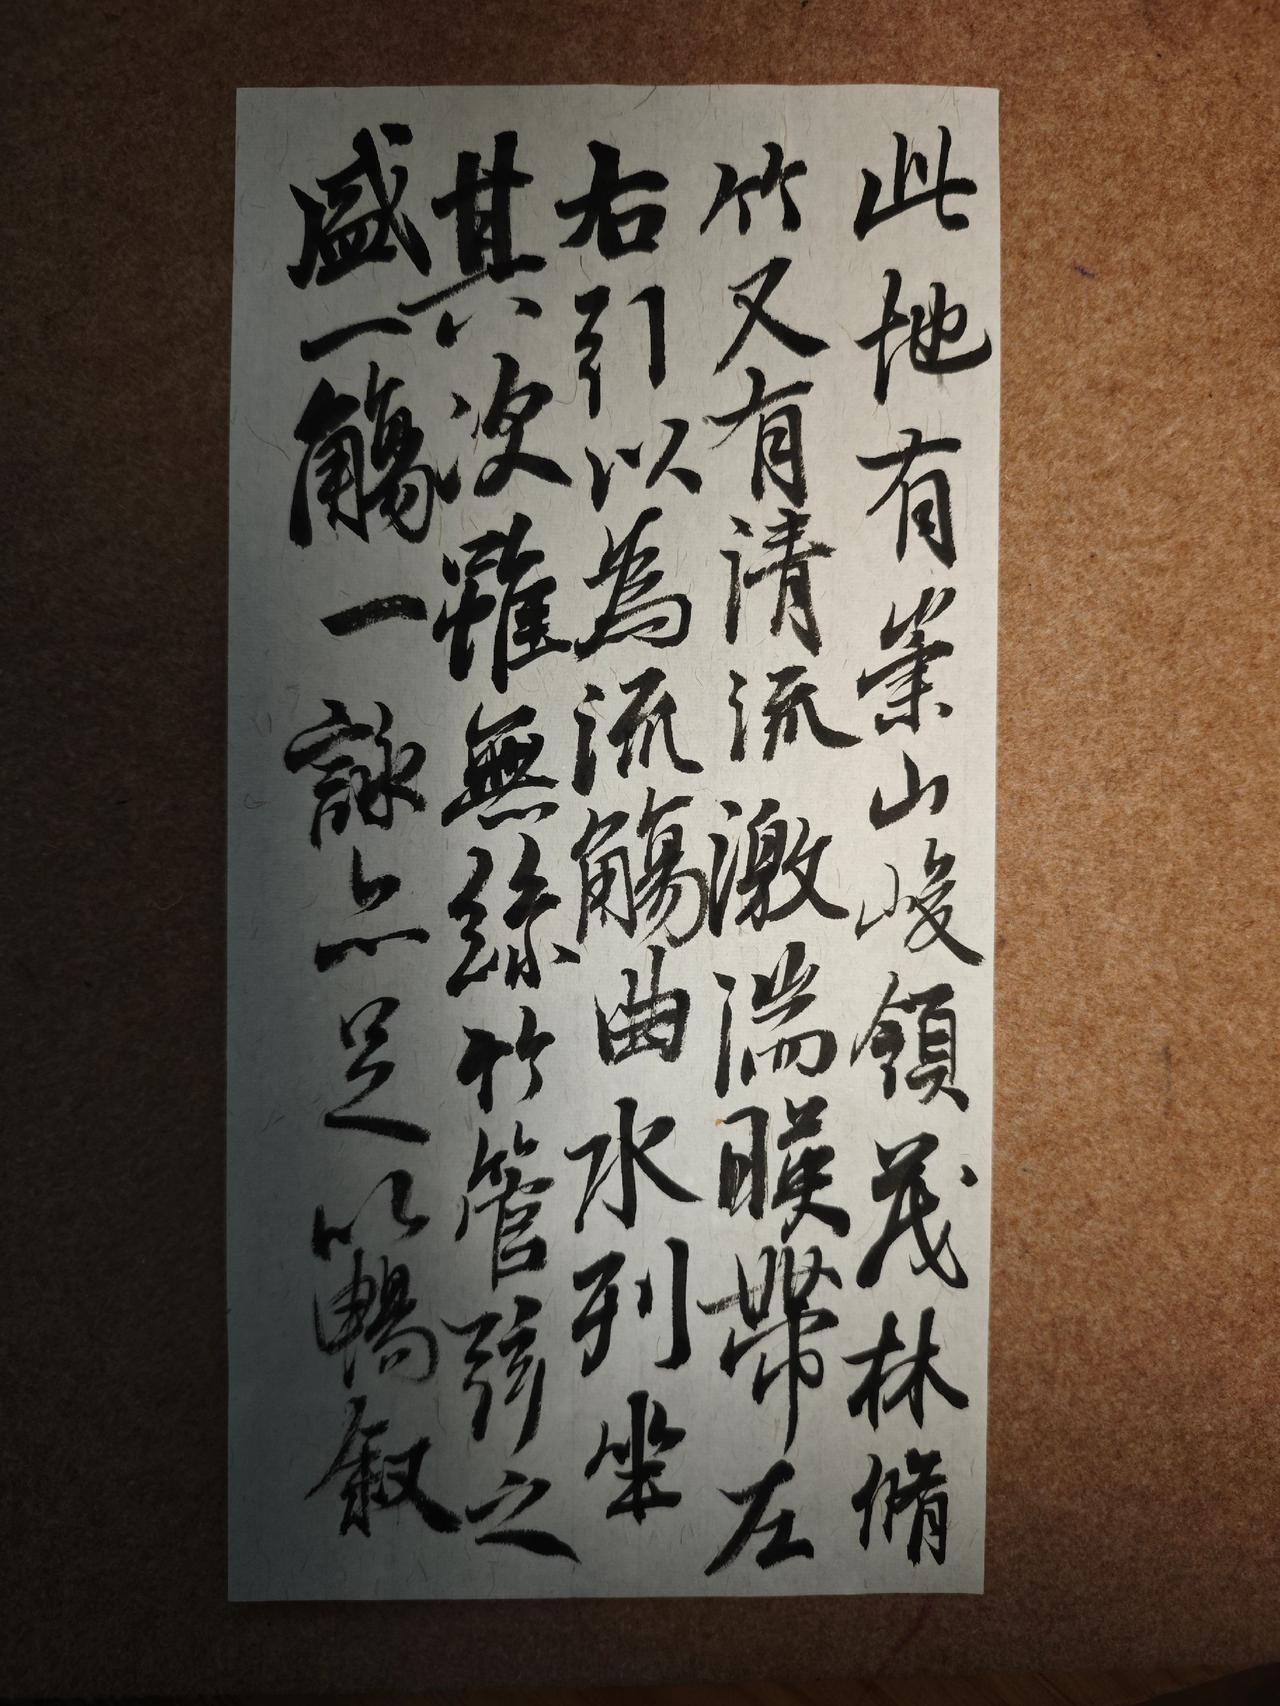 此地有崇山峻領茂林脩
竹又有清流激湍暎帶左
右引以為流觴曲水列坐
其次雖無絲竹管弦之
盛一觴一詠亦足以暢敘